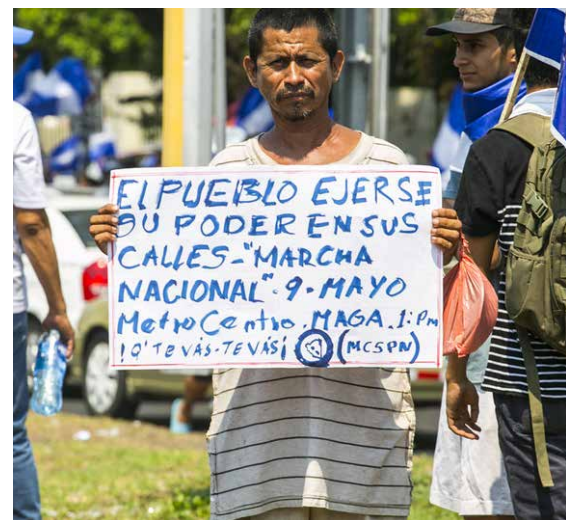 El PUEBLO EJERSE
SU PODER EN SUS
CALLES-"MARCHA
NACIONAL". 9-MAYO
MetroCentro. MAGA. 1:Pm
!Q' TE VÁS-TE VÁS¡ (MCSPN)